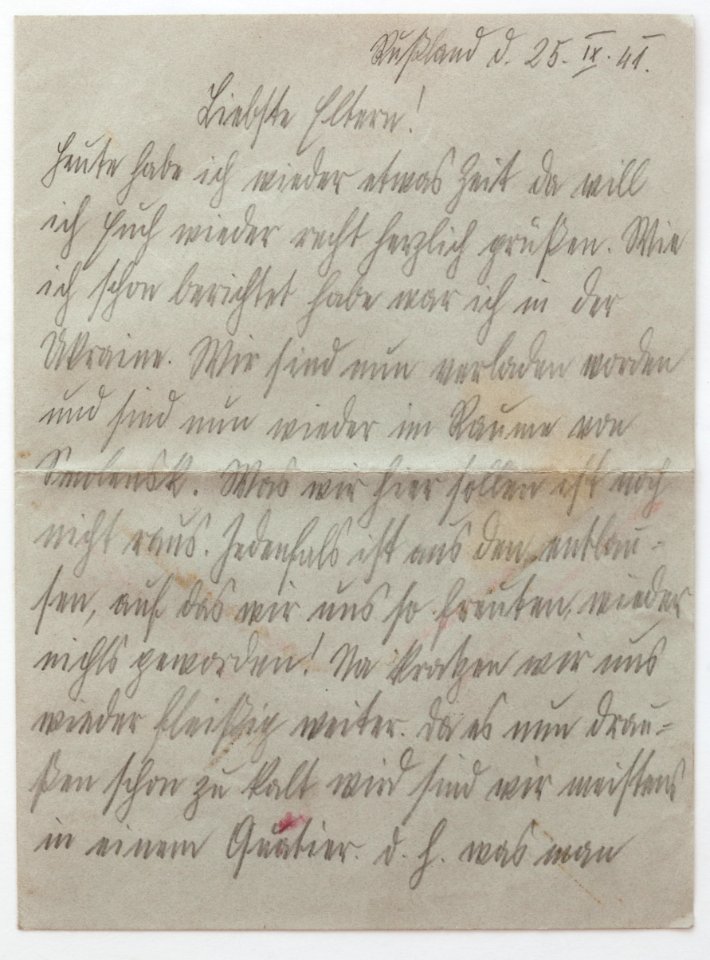 Rußland d. 25. IX. 41.
Liebste Eltern!
Heute habe ich wieder etwas Zeit da will
ich Euch wieder recht herzlich grüßen. Wie
ich schon berichtet habe war ich in der
Ukraine. Wir sind nun verladen worden
und sind nun wieder im Raume von
Smolensk. Was wir hier sollen ist noch
nicht raus. Jedenfals ist aus den entlau-
sen, auf das wir uns so freuten, wieder
nichts geworden! Na kratzen wir uns
wieder fleißig weiter. Da es nun drau-
ßen schon zu kalt wird sind wir meistens
in einem Quatier. d. h. was man